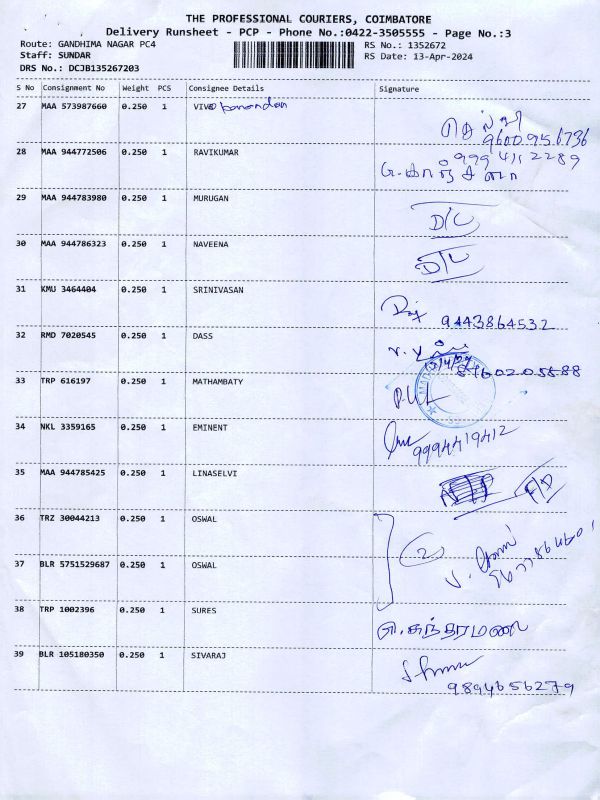 THE PROFESSIONAL COURIERS, COIMBATORE
Delivery Runsheet - PCP - Phone No.:0422-3505555 - Page No.:3
Route: GANDHIMA NAGAR PC4 RS No.: 1352672
Staff: SUNDAR RS Date: 13-Apr-2024
DRS No.: DCJB135267203
S No Consignment No Weight PCS Consignee Details Signature
27 MAA 573987660 0.250 1
9600956736
28 MAA 944772506 0.250 1 RAVIKUMAR
29 MAA 944783980 0.250 1 MURUGAN D/L
30 MAA 944786323 0.250 1 NAVEENA D/L
31 KMU 3464404 0.250 1 SRINIVASAN
9443864532
32 RMD 7020545 0.250 1 DASS
33 TRP 616197 0.250 1 MATHAMBATY
34 NKL 3359165 0.250 1 EMINENT
9994419412
35 MAA 944785425 0.250 1 LINASELVI
36 TRZ 30044213 0.250 1 OSWAL
2
37 BLR 5751529687 0.250 1 OSWAL
38 TRP 1002396 0.250 1 SURES
39 BLR 105180350 0.250 1 SIVARAJ
9894656279